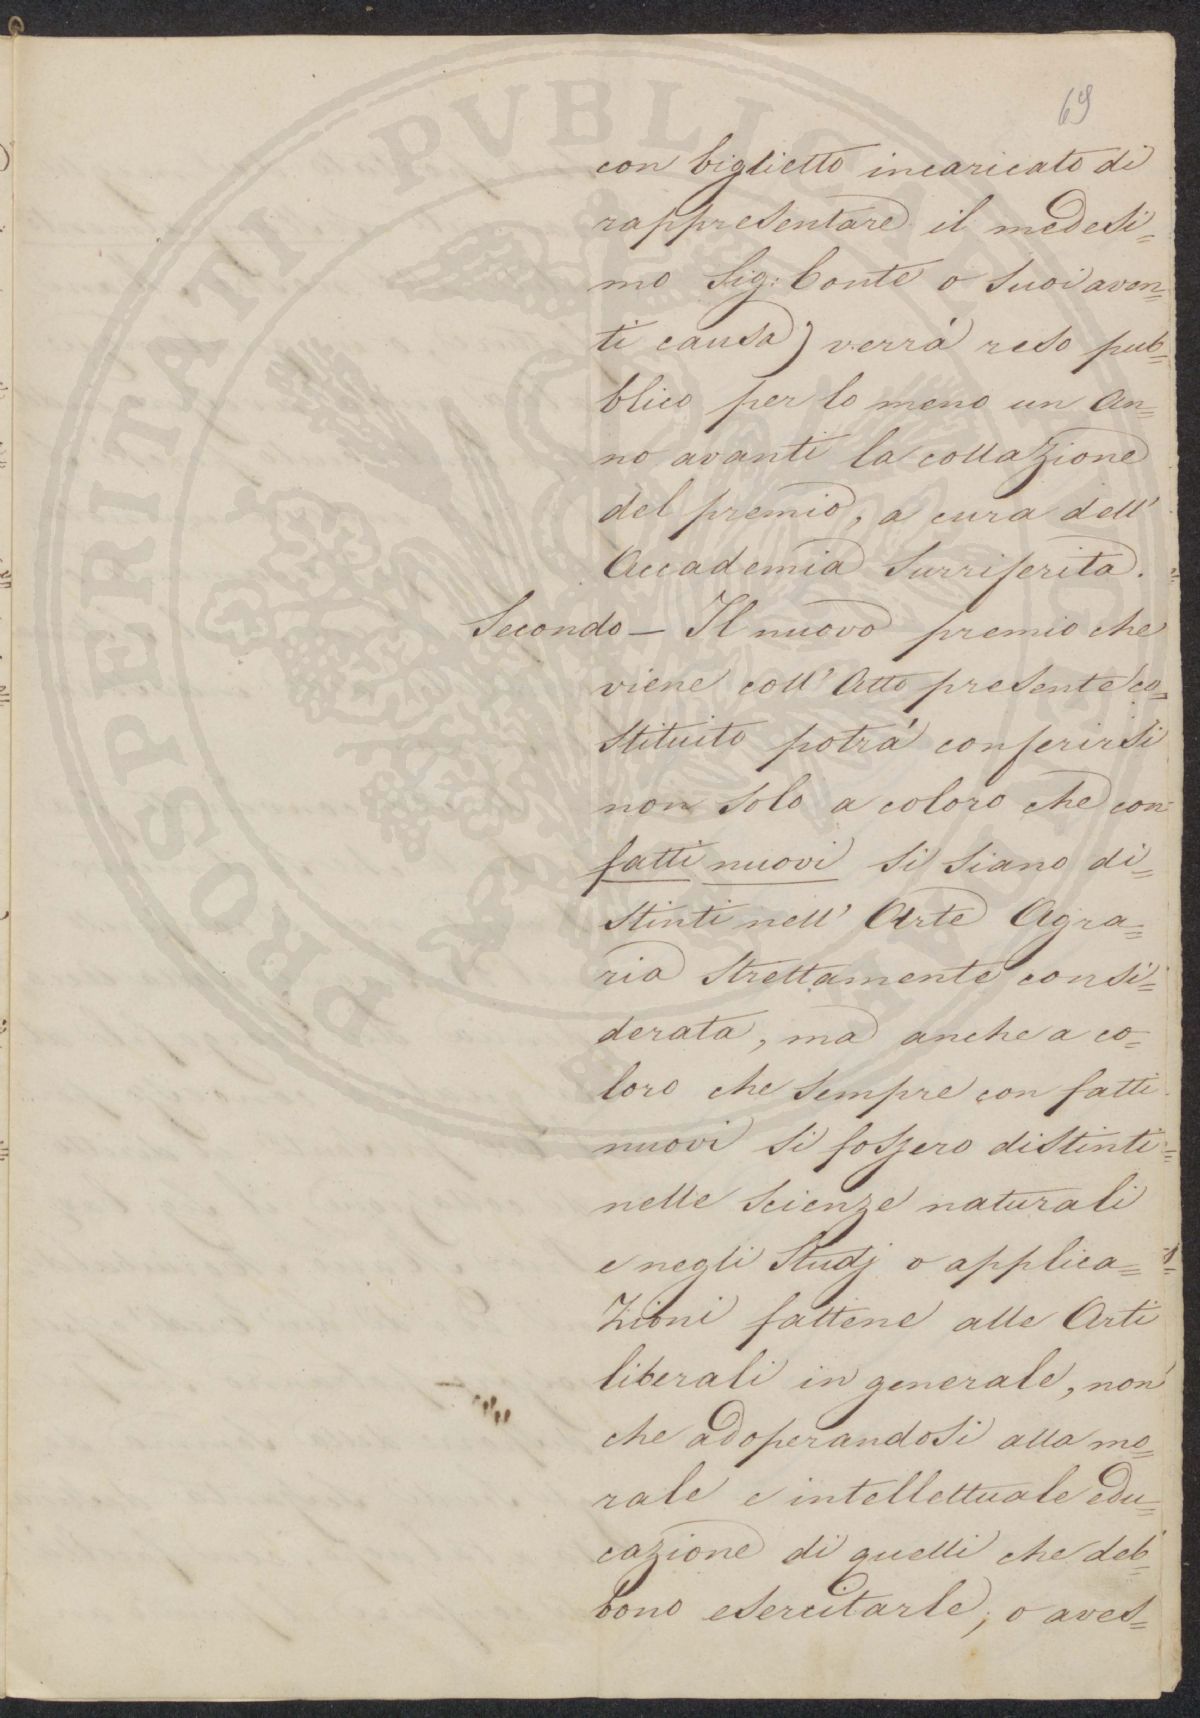 69
con biglietto incaricato di
rappresentare il medesi=
mo Sig: Conte o suoi aven=
ti causa) verrà reso pub=
blico per lo meno un An=
no avanti la collazione
del premio, a cura dell'
Accademia Surriferita.
Secondo — Il nuovo premio che
viene coll' Atto presente co=
stituito potrà conferirsi
non solo a coloro che con
fatti nuovi si siano di=
stinti nell' Arte Agra=
ria strettamente consi=
derata, ma anche a co=
loro che sempre con fatti
nuovi si fossero distinti=
nelle Scienze naturali
e negli Studj o applica=
zioni fattene alle Arti
liberali in generale, non
che adoperandosi alla mo=
rale e intellettuale edu=
cazione di quelli che deb=
bono esercitarle, o aves=
PROSPERITATI PUBLICAE